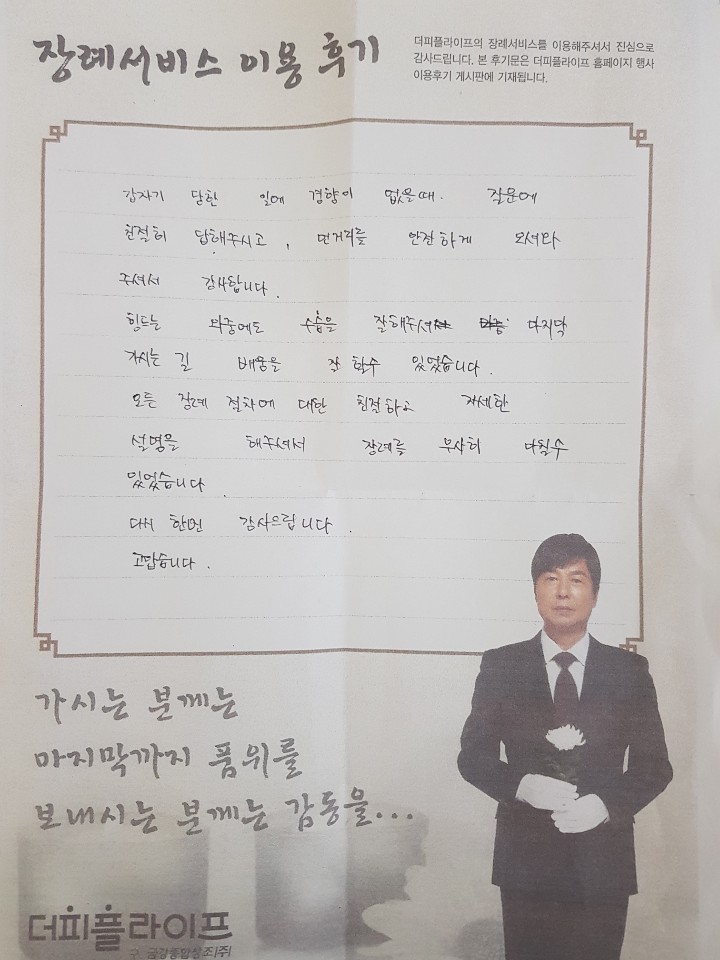 장례서비스 이용 후기
더피플라이프의 장례서비스를 이용해주셔서 진심으로
감사드립니다. 본 후기문은 더피플라이프 홈페이지 행사
이용후기 게시판에 기재됩니다.
갑자기 당한 일에 경향이 없을때. 질문에
친절히 답해주시고, 먼거리를 안전하게 모셔와
주셔서 감사합니다.
힘드는 와중에도 수습을 잘해주셔 마지막
가시는 길 배웅을 잘 할수 있었습니다.
모든 장례 절차에 대한 친절하고 자세한
설명을 해주셔서 장례를 무사히 마칠수
있었습니다.
다시 한번 감사드립니다.
고맙습니다.
가시는 분께는
마지막까지 품위를
보내시는 분께는 감동을...
더피플라이프
구 금강종합상조(주)